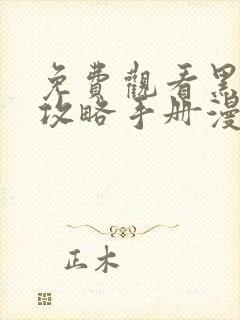 免費觀看黑
攻略手册漫
正木